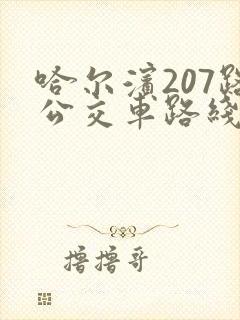 哈尔滨207路
公交车路线
撸撸哥